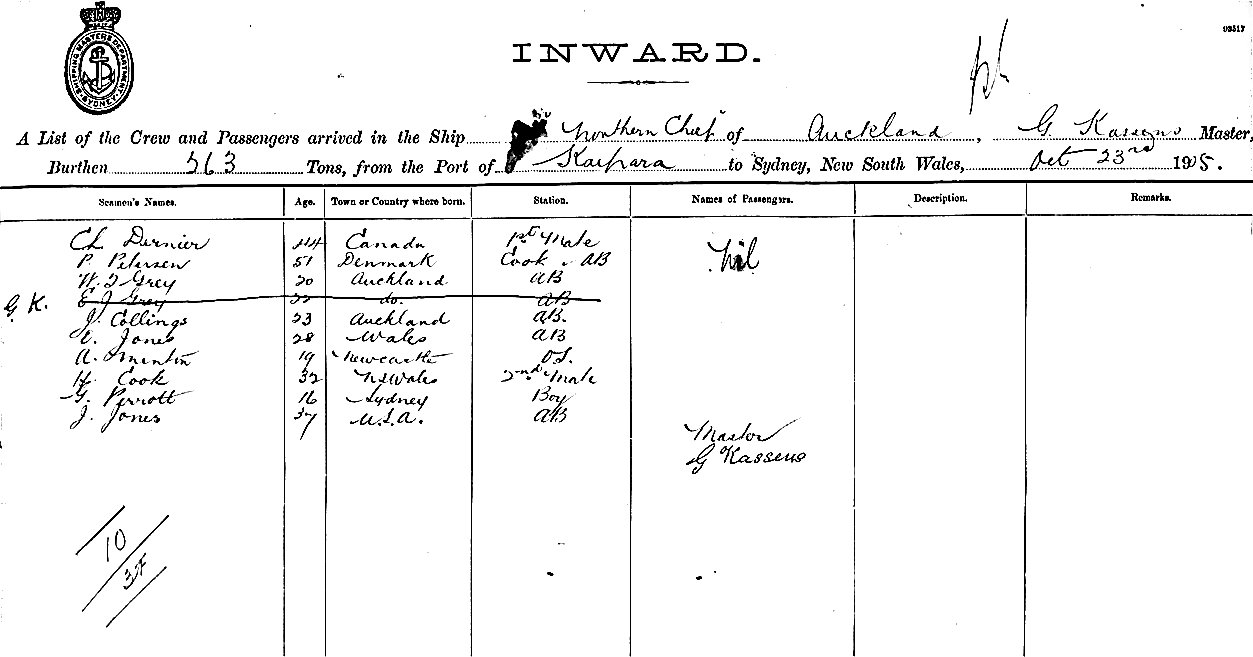 SHIPPING MASTERS DEPARTMENT
SYDNEY
03517
INWARD.
A List of the Crew and Passengers arrived in the Ship "Northern Chief" of Auckland, G. Kassens Master,
Burthen 263 Tons, from the Port of Kaipara to Sydney, New South Wales, Oct 23rd 1905.
Seamen's Names. Age. Town or Country where born. Station. Names of Passengers. Description. Remarks.
Ch Dernier 44 Canada 1st Mate Nil
P. Petersen 51 Denmark Cook & AB
W. J Grey 20 Auckland AB
G. K. E J Grey 22 do. AB
J. Collings 23 Auckland AB.
Jones 28 Wales AB
A. 19 Newcastle O.S.
H. Cook 32 N S Wales 2nd Mate
G. Perrott 16 Sydney Boy
J. Jones 37 U.S.A. AB
Master
G Kassens
10